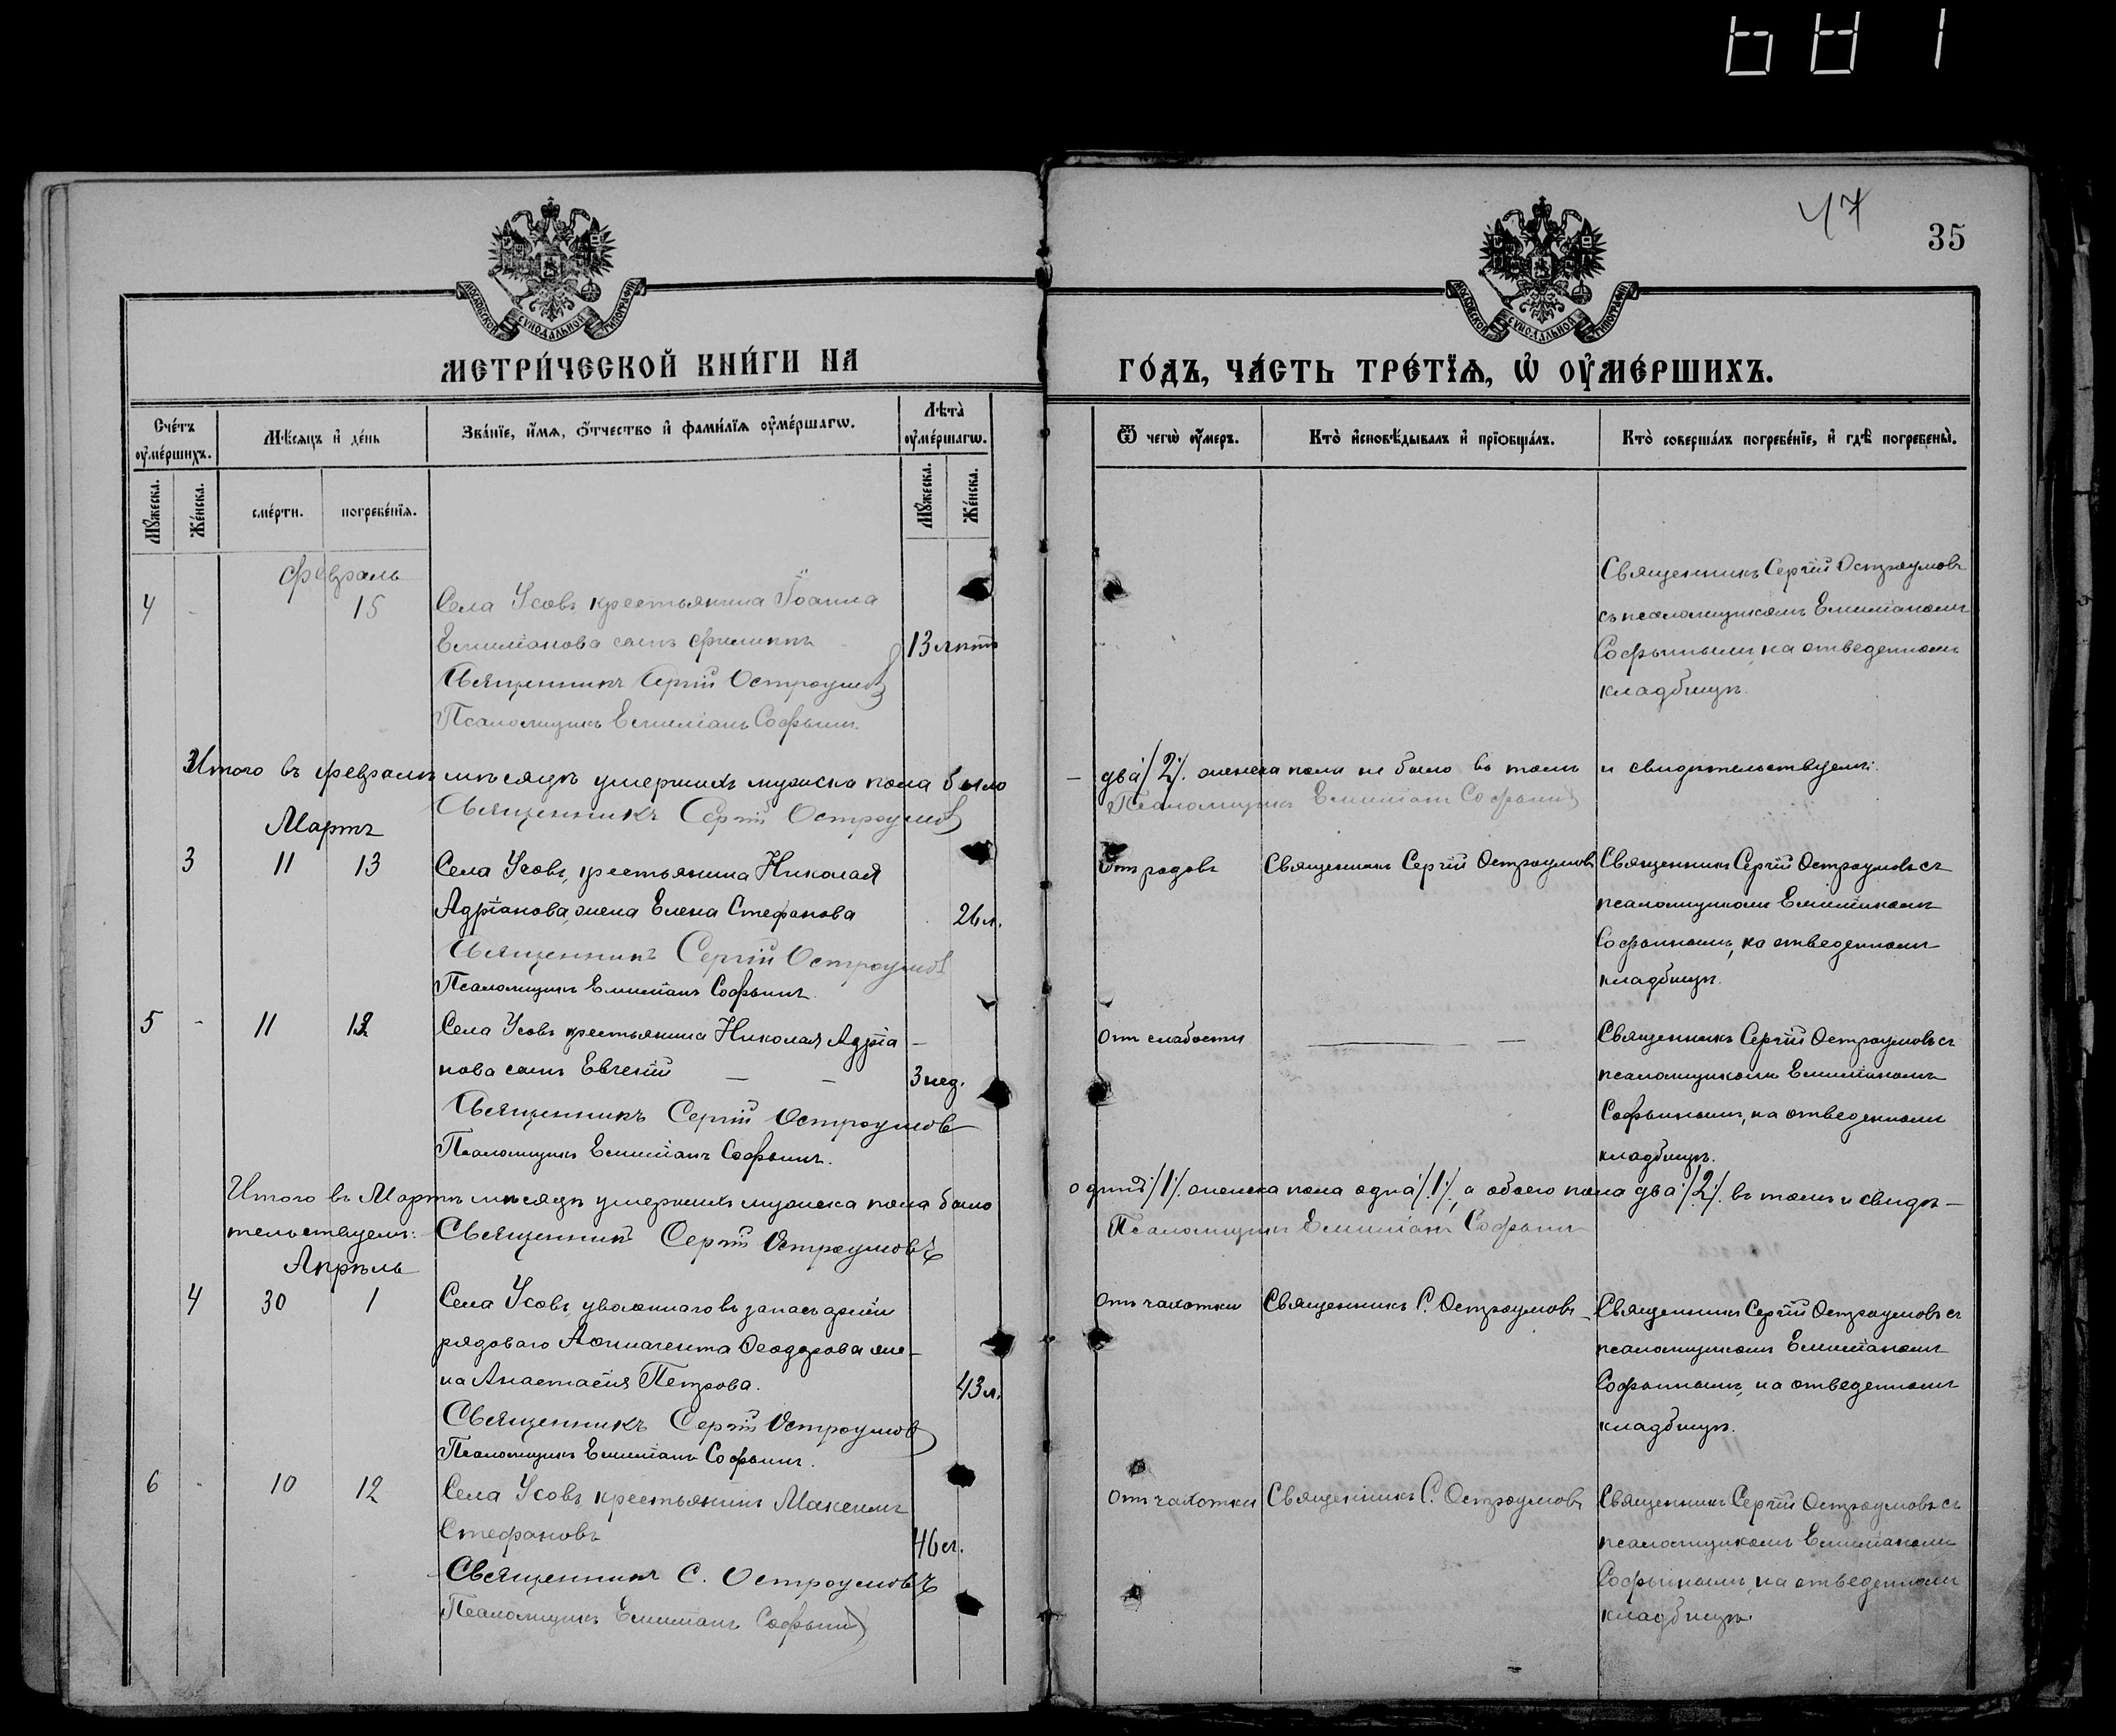 681
47
35
МОСКОВСКОЙ СУНОДАЛЬНОЙ ТИПОГРАФІИ
МОСКОВСКОЙ СУНОДАЛЬНОЙ ТИПОГРАФІИ
МЕТРИ́ЧЕСКОЙ КНИ́ГИ НА
ГО́ДЪ, ЧА́СТЬ ТРЕ́ТЇѦ, Ѡ҆ ОУ҆МЕ́РШИХЪ.
Сче́тъ оу҆ме́ршихъ.
Мѣ́сѧцъ и҆ де́нь
Зва́нїе, и҆́мѧ, ѻ҆́тчество и҆ фами́лїѧ оу҆ме́ршагѡ.
Лѣта̀ оу҆ме́ршагѡ.
Ѿ чегѡ̀ оу҆́меръ.
Кто̀ и҆сповѣ́дывалъ и҆ прїѡбща́лъ.
Кто̀ соверша́лъ погребе́нїе, и҆ гдѣ̀ погребены̀.
Мꙋ́жеска.
Же́нска.
сме́рти.
погребе́нїѧ.
Мꙋ́жеска.
Же́нска.
Февраль
4 - 15
Села Усовъ крестьянина Іоанна
Емиліанова сынъ Филиппъ - 13 лѣтъ
Священникъ Сергій Остроумов
Псаломщикъ Емиліанъ Софьинъ.
Священникъ Сергій Остроумовъ
съ псаломщикомъ Емиліаномъ
Софьинымъ, на отведенномъ
кладбищѣ.
Итого въ февралѣ мѣсяцѣ умершихъ мужска пола было - два /2/. женска пола не было въ томъ и свидѣтельствуемъ:
Священникъ Сергій Остроумов Псаломщикъ Емиліанъ Софьинъ
Мартъ
3 11 13
Села Усовъ, крестьянина Николая
Адріанова, жена Елена Стефанова 26 л.
Священникъ Сергій Остроумов
Псаломщикъ Емиліанъ Софьинъ.
Отъ родовъ
Священникъ Сергій Остроумовъ
Священникъ Сергій Остроумовъ съ
псаломщикомъ Емиліаномъ
Софьинымъ, на отведенномъ
кладбищѣ.
5 - 11
Села Усовъ крестьянина Николая Адріа-
нова сынъ Евгеній — - 3 нед.
Священникъ Сергій Остроумовъ
Псаломщикъ Емиліанъ Софьинъ.
Отъ слабости
— —
Священникъ Сергій Остроумовъ съ
псаломщикомъ Емиліаномъ
Софьинымъ, на отведенномъ
кладбищѣ.
Итого въ Мартѣ мѣсяцѣ умершихъ мужска пола было одинъ /1/. женска пола одна /1/, а обоего пола два /2/. въ томъ и свидѣ-
тельствуемъ: Священникъ Сергій Остроумовъ Псаломщикъ Емиліанъ Софьинъ
Апрѣль
4 30 1
Села Усовъ, уволеннаго въ запасъ арміи
рядоваго Ѳеодорова же-
на Анастасія Петрова. 43 л.
Священникъ Сергій Остроумов
Псаломщикъ Емиліанъ Софьинъ.
Отъ чахотки
Священникъ С. Остроумовъ
Священникъ Сергій Остроумовъ съ
псаломщикомъ Емиліаномъ
Софьинымъ, на отведенномъ
кладбищѣ.
6 - 10 12
Села Усовъ крестьянинъ Максимъ
Стефановъ 46 л.
Священникъ С. Остроумовъ
Псаломщикъ Емиліанъ Софьинъ
Отъ чахотки
Священникъ С. Остроумовъ
Священникъ Сергій Остроумовъ съ
псаломщикомъ Емиліаномъ
Софьинымъ, на отведенномъ
кладбищѣ.